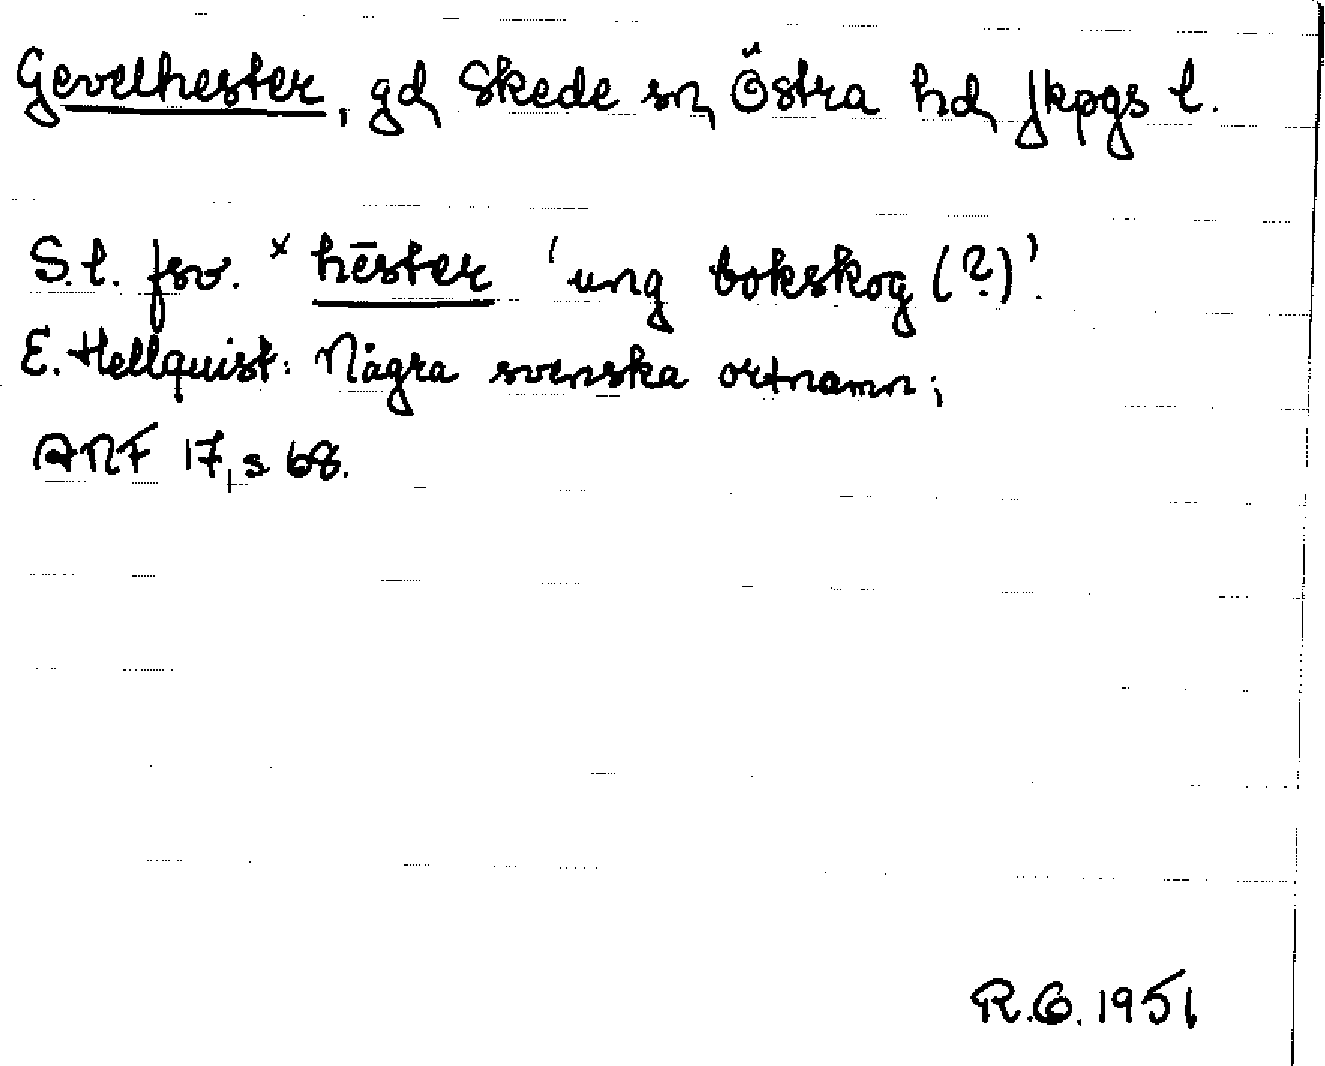 Gevelhester, gd, Skede sn, Östra hd, Jkpgs l.
S.l. fsv. ˣhēster 'ung bokskog (?)'.
E. Hellquist: Några svenska ortnamn;
ANF 17, s 68.
R.G. 1951